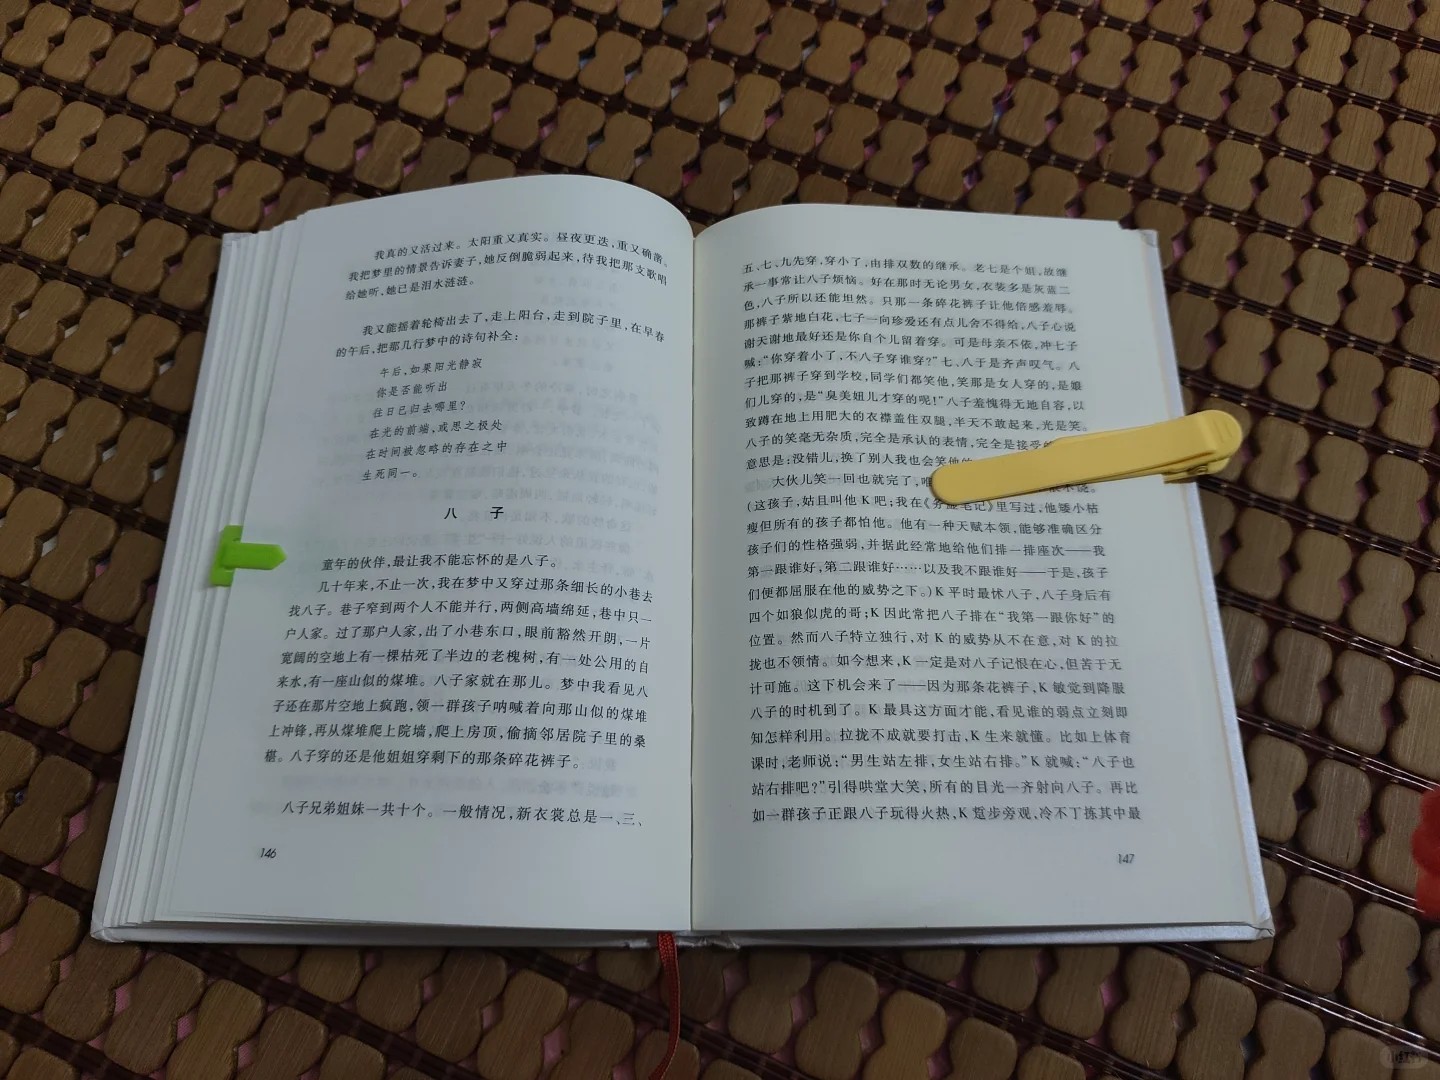 我真的又活过来。太阳重又真实。昼夜更迭，重又确凿。
我把梦里的情景告诉妻子，她反倒脆弱起来，待我把那支歌唱
给她听，她已是泪水涟涟。
我又能摇着轮椅出去了，走上阳台，走到院子里，在早春
的午后，把那几行梦中的诗句补全：
午后，如果阳光静寂
你是否能听出
往日已归去哪里？
在光的前端，或思之极处
在时间被忽略的存在之中
生死同一。
八 子
童年的伙伴，最让我不能忘怀的是八子。
几十年来，不止一次，我在梦中又穿过那条细长的小巷去
找八子。巷子窄到两个人不能并行，两侧高墙绵延，巷中只一
户人家。过了那户人家，出了小巷东口，眼前豁然开朗，一片
宽阔的空地上有一棵枯死了半边的老槐树，有一处公用的自
来水，有一座山似的煤堆。八子家就在那儿。梦中我看见八
子还在那片空地上疯跑，领一群孩子呐喊着向那山似的煤堆
上冲锋，再从煤堆爬上院墙，爬上房顶，偷摘邻居院子里的桑
椹。八子穿的还是他姐姐穿剩下的那条碎花裤子。
八子兄弟姐妹一共十个。一般情况，新衣裳总是一、三、
146
五、七、九先穿，穿小了，由排双数的继承。老七是个姐，故继
承一事常让八子烦恼。好在那时无论男女，衣装多是灰蓝二
色，八子所以还能坦然。只那一条碎花裤子让他倍感羞辱。
那裤子紫地白花，七子一向珍爱还有点儿舍不得给，八子心说
谢天谢地最好还是你自个儿留着穿。可是母亲不依，冲七子
喊：“你穿着小了，不八子穿谁穿？”七、八于是齐声叹气。八
子把那裤子穿到学校，同学们都笑他，笑那是女人穿的，是娘
们儿穿的，是“臭美妞儿才穿的呢！”八子羞愧得无地自容，以
致蹲在地上用肥大的衣襟盖住双腿，半天不敢起来，光是笑。
八子的笑毫无杂质，完全是承认的表情，完全是接受的
意思是：没错儿，换了别人我也会笑他的
大伙儿笑一回也就完了，唯
（这孩子，姑且叫他K吧；我在《务虚笔记》里写过，他矮小枯
瘦但所有的孩子都怕他。他有一种天赋本领，能够准确区分
孩子们的性格强弱，并据此经常地给他们排一排座次——我
第一跟谁好，第二跟谁好……以及我不跟谁好——于是，孩子
们便都屈服在他的威势之下。）K平时最怵八子，八子身后有
四个如狼似虎的哥；K因此常把八子排在“我第一跟你好”的
位置。然而八子特立独行，对K的威势从不在意，对K的拉
拢也不领情。如今想来，K一定是对八子记恨在心，但苦于无
计可施。这下机会来了——因为那条花裤子，K敏觉到降服
八子的时机到了。K最具这方面才能，看见谁的弱点立刻即
知怎样利用。拉拢不成就要打击，K生来就懂。比如上体育
课时，老师说：“男生站左排，女生站右排。”K就喊：“八子也
站右排吧？”引得哄堂大笑，所有的目光一齐射向八子。再比
如一群孩子正跟八子玩得火热，K踅步旁观，冷不丁拣其中最
147